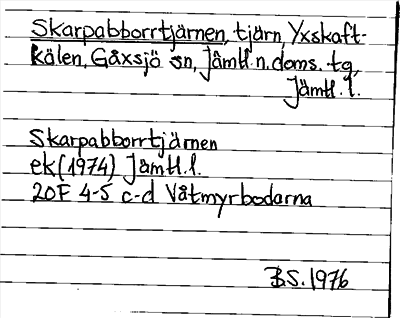 Skarpabborrtjärnen, tjärn, Yxskaft-
kälen, Gåxsjö sn, Jämtl. n. doms. tg,
Jämtl. l.
Skarpabborrtjärnen
ek (1974) Jämtl. l.
20F 4-5 c-d Våtmyrbodarna
B.S. 1976